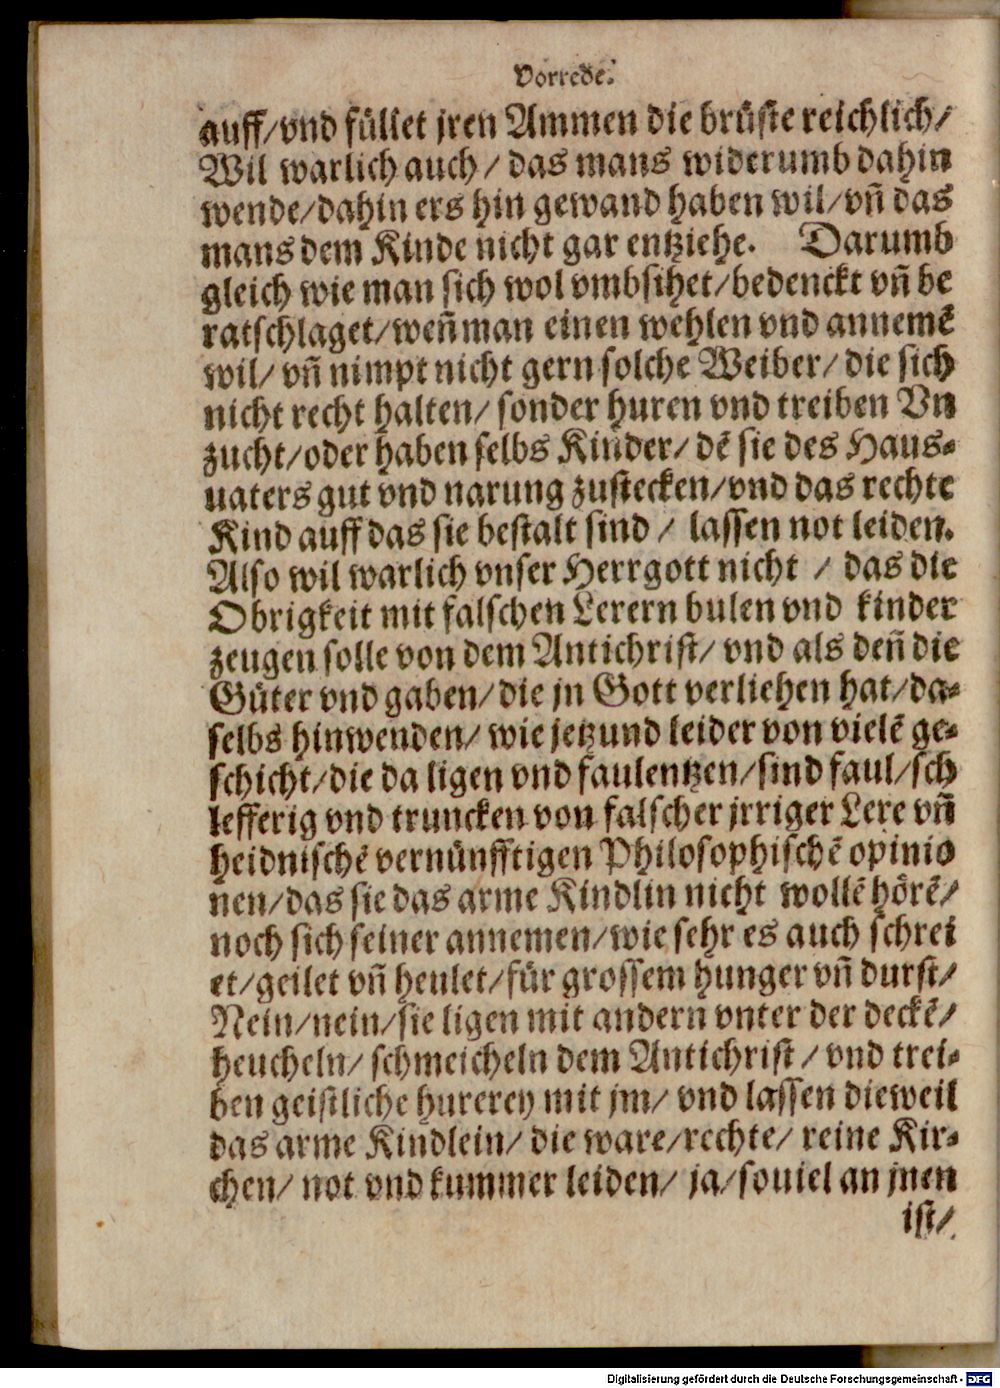 Vorrede.
auff/vnd füllet jren Ammen die brüste reichlich/
Wil warlich auch / das mans widerumb dahin
wende/dahin ers hin gewand haben wil/vñ das
mans dem Kinde nicht gar entziehe. Darumb
gleich wie man sich wol vmbsihet/bedenckt vñ be
ratschlaget/weñ man einen wehlen vnd annemē
wil/ vñ nimpt nicht gern solche Weiber/ die sich
nicht recht halten/ sonder huren vnd treiben Vn
zucht/oder haben selbs Kinder/ dē sie des Haus-
uaters gut vnd narung zustecken/vnd das rechte
Kind auff das sie bestalt sind / lassen not leiden.
Also wil warlich vnser Herrgott nicht / das die
Obrigkeit mit falschen Lerern bulen vnd kinder
zeugen solle von dem Antichrist/ vnd als deñ die
Güter vnd gaben/die jn Gott verliehen hat/da-
selbs hinwenden/ wie jetzund leider von vielē ge-
schicht/die da ligen vnd faulentzen/sind faul/sch
lefferig vnd truncken von falscher jrriger Lere vñ
heidnischē vernünfftigen Philosophischē opinio
nen/das sie das arme Kindlin nicht wollē hörē/
noch sich seiner annemen/wie sehr es auch schrei
et/geilet vñ heulet/für grossem hunger vñ durst/
Nein/nein/sie ligen mit andern vnter der deckē/
heucheln/ schmeicheln dem Antichrist / vnd trei-
ben geistliche hurerey mit jm/ vnd lassen dieweil
das arme Kindlein/ die ware/rechte/ reine Kir-
chen/ not vnd kummer leiden/ ja/souiel an jnen
ist/
Digitalisierung gefördert durch die Deutsche Forschungsgemeinschaft - DFG